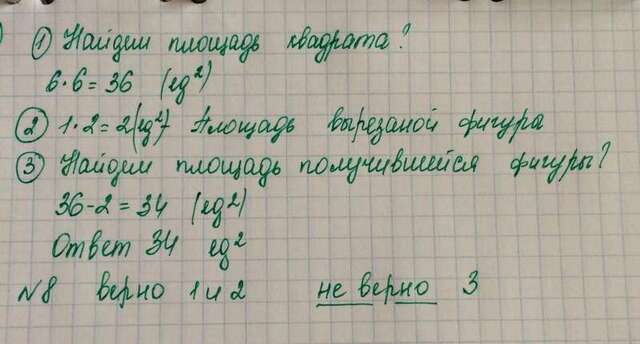 ① Найдем площадь квадрата?
6·6=36 (ед²)
② 1·2=2(ед²) Площадь вырезаной фигура
③ Найдем площадь получившейся фигуры?
36-2=34 (ед²)
Ответ 34 ед²
№8 верно 1 и 2 не верно 3